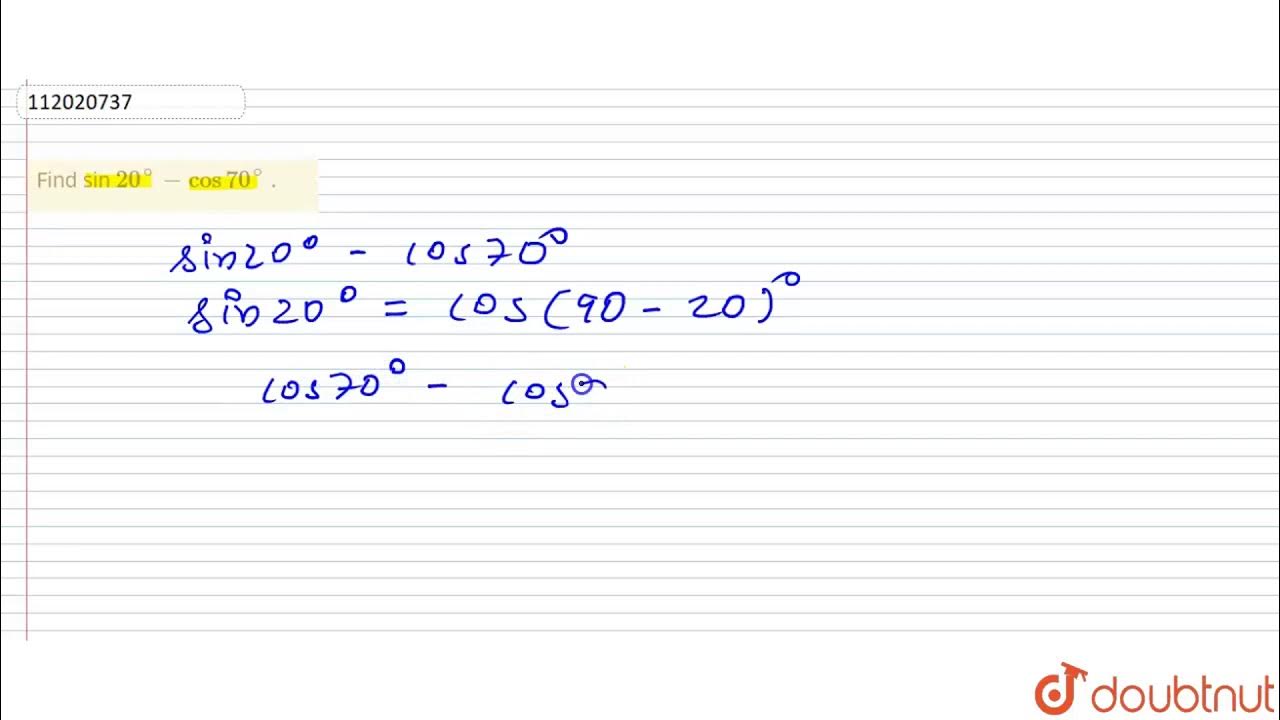 112020737
Find sin 20° − cos 70° .
sin20° - cos70°
sin20° = cos(90 - 20)°
cos70° - cos
doubtnut